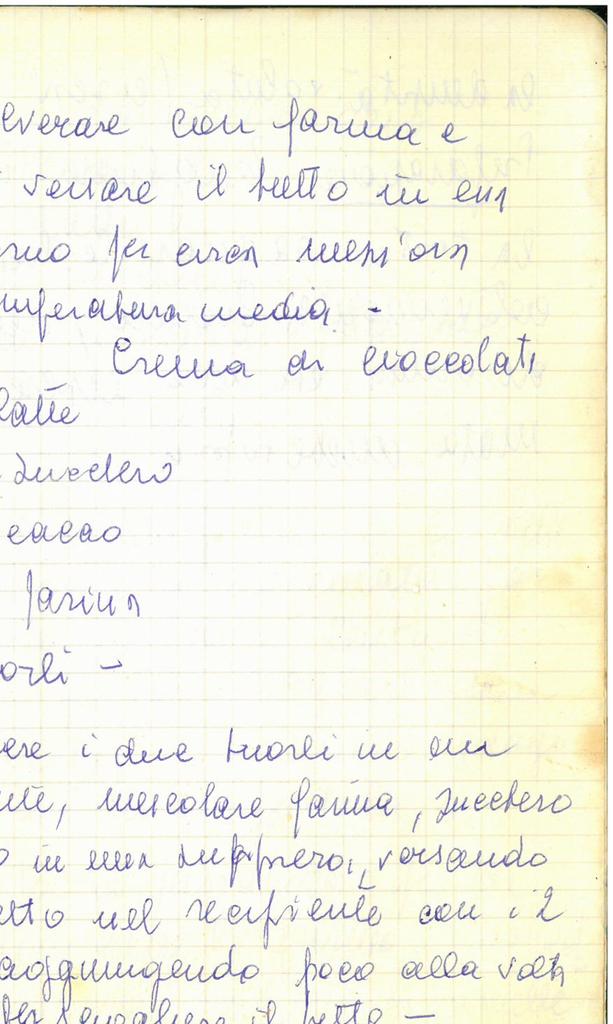 everare con farina e
versare il tutto in una
rno per circa mezz'ora
mperatura media -
Crema di cioccolato
latte
zucchero
cacao
farina
orli -
ere i due tuorli in un
nte, mescolare farina, zucchero
o in una zuppiera, versando
etto nel recipiente con i 2
aggiungendo poco alla volta
per sciogliere il tutto -